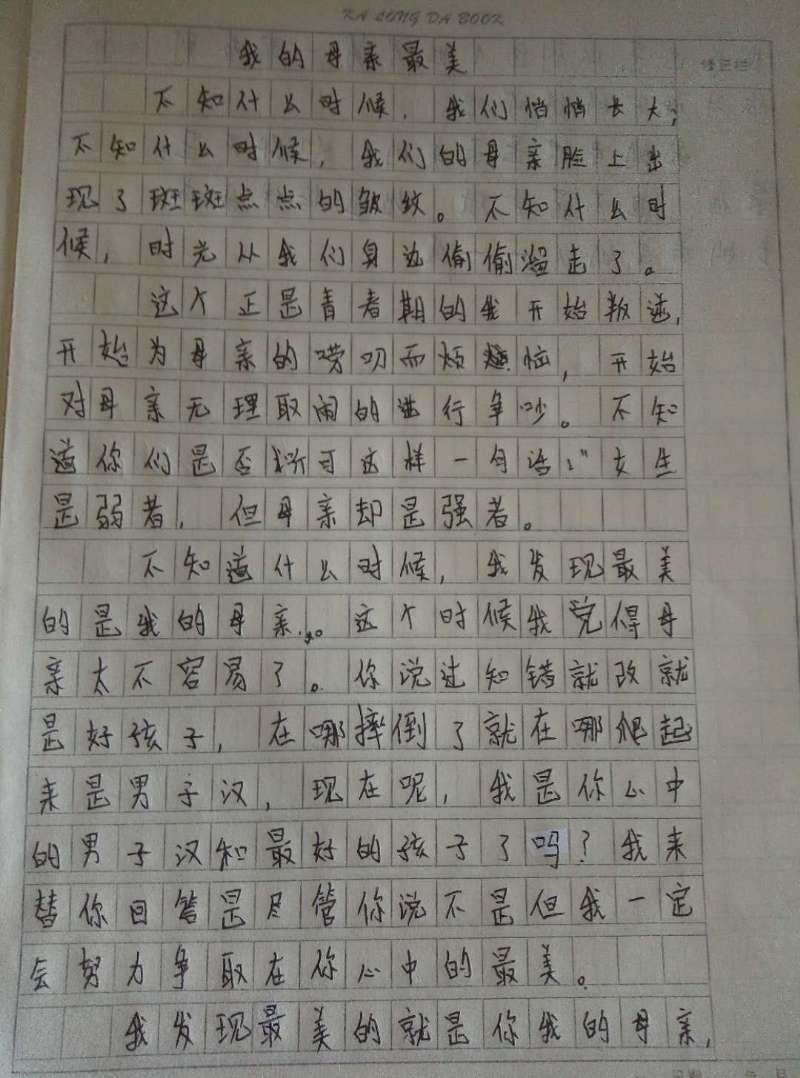 KA LONG DA BOOK
我的母亲最美
不知什么时候，我们悄悄长大；
不知什么时候，我们的母亲脸上出
现了斑斑点点的皱纹。不知什么时
候，时光从我们身边偷偷溜走了。
这个正是青者期的我开始叛逆，
开始为母亲的唠叨而烦恼，开始
对母亲无理取闹的进行争吵。不知
道你们是否听可这样一句话："女生
是弱者，但母亲却是强者。
不知道什么时候，我发现最美
的是我的母亲。这个时候我觉得母
亲太不容易了。你说过知错就改就
是好孩子，在哪摔倒了就在哪爬起
来是男子汉，现在呢，我是你心中
的男子汉和最好的孩子了吗？我来
替你回答是尽管你说不是但我一定
会努力争取在你心中的最美。
我发现最美的就是你我的母亲，